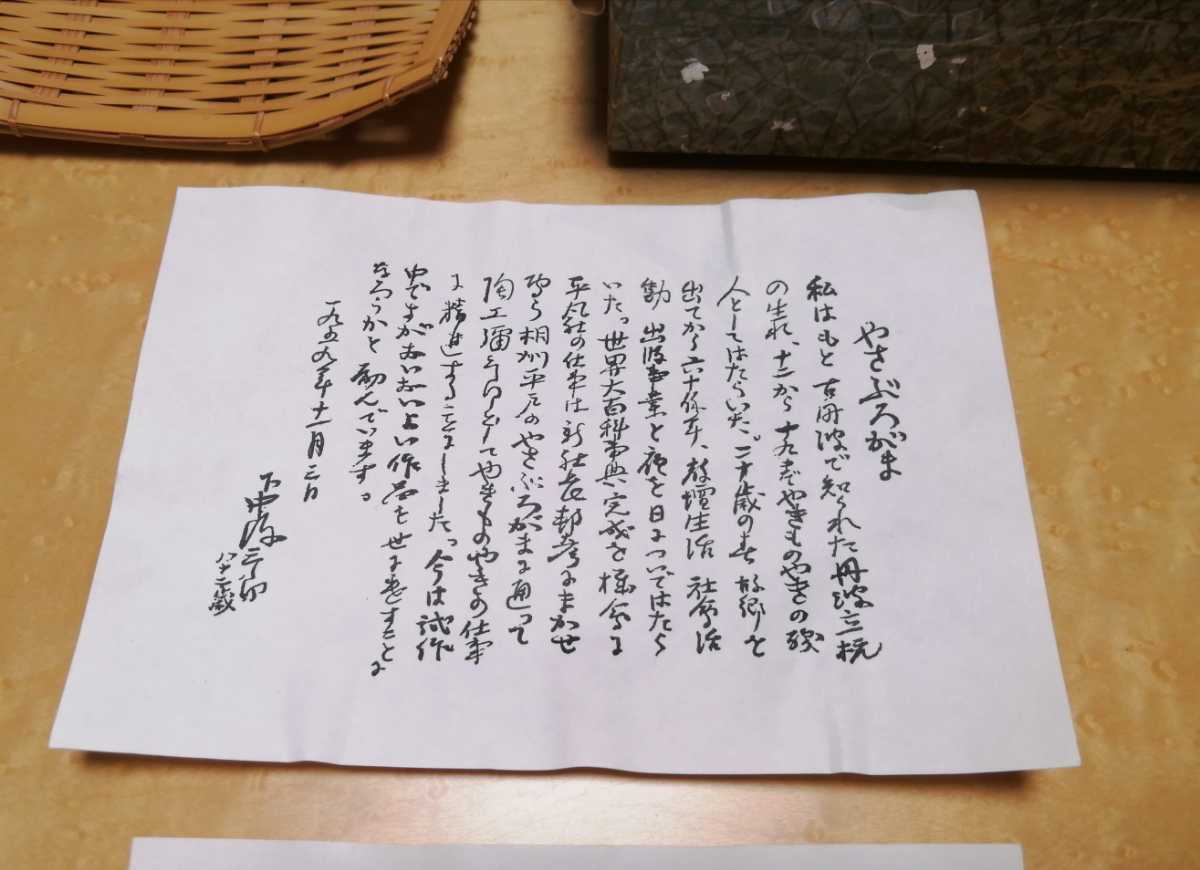 やさぶろがま
私はもと 古丹波で知られた丹波立杭
の生れ、十二から十九までやきものやきの職
人としてはたらいた。二十歳の春 故郷を
出てから六十余年、教壇生活 社会活
動 出版事業と夜を日についではたら
いた。世界大百科事典完成を機会に
平凡社の仕事は新社長邦彦にまかせ
専ら相州平戸のやさぶろがまに通って
陶工彌三郎としてやきものやきの仕事
に精進することにしました。今は試作
中ですがおいおいよい作品を世に出すことに
なろうかと励んでいます。
一九五九年十一月三日
下中彌三郎
八十二歳